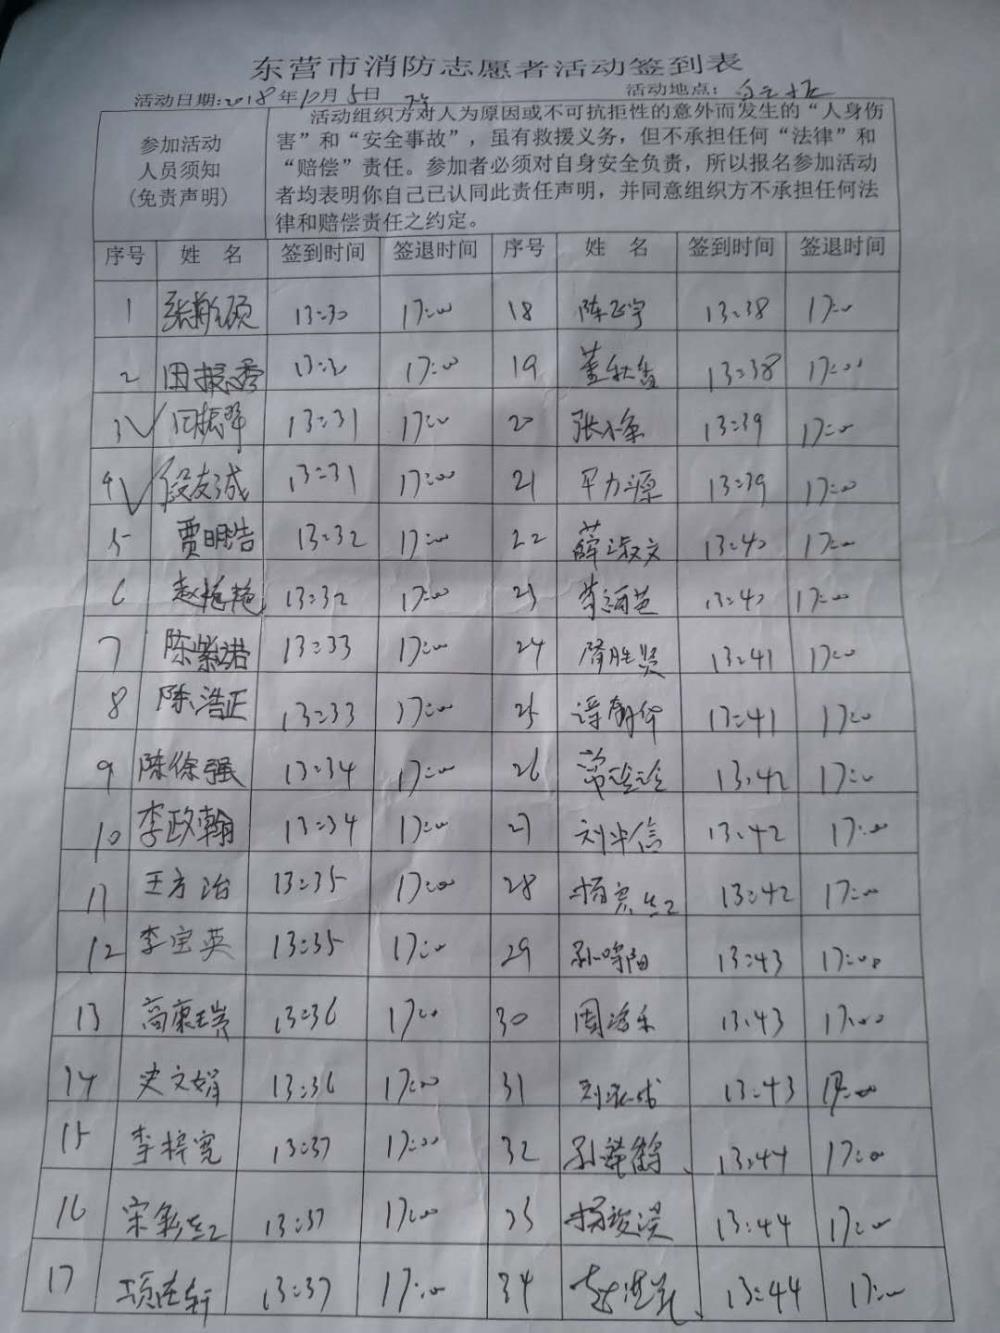 东营市消防志愿者活动签到表
活动日期:2018年10月5日 活动地点:
参加活动
人员须知
(免责声明)
活动组织方对人为原因或不可抗拒性的意外而发生的“人身伤
害”和“安全事故”，虽有救援义务，但不承担任何“法律”和
“赔偿”责任。参加者必须对自身安全负责，所以报名参加活动
者均表明你自己己认同此责任声明，并同意组织方不承担任何法
律和赔偿责任之约定。
序号 姓 名 签到时间 签退时间 序号 姓 名 签到时间 签退时间
1 13:30 17:00 18 陈正宇 13:38 17:00
2 田振秀 17:00 19 13:38 17:00
3 田振翠 13:31 17:00 20 张小军 13:39 17:00
4 段友成 13:31 17:00 21 13:39 17:00
5 贾明浩 13:32 17:00 22 薛淑文 13:40 17:00
6 赵艳艳 13:32 17:00 23 13:40 17:00
7 陈紫诺 13:33 17:00 24 13:41 17:00
8 陈浩正 13:33 17:00 25 13:41 17:00
9 陈徐强 13:34 17:00 26 13:42 17:00
10 李政翰 13:34 17:00 27 13:42 17:00
11 王方治 13:35 17:00 28 13:42 17:00
12 李宝英 13:35 17:00 29 13:43 17:00
13 13:36 17:00 30 13:43 17:00
14 史文娟 13:36 17:00 31 13:43 17:00
15 李梓宽 13:37 17:00 32 13:44 17:00
16 13:37 17:00 33 13:44 17:00
17 13:37 17:00 34 13:44 17:00